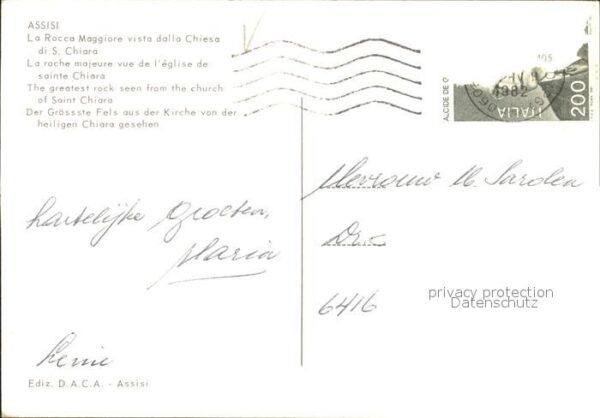 ASSISI
La Rocca Maggiore vista dalla Chiesa
di S. Chiara
La roche majeure vue de l'église de
sainte Chiara
The greatest rock seen from the church
of Saint Chiara
Der Grössste Fels aus der Kirche von der
heiligen Chiara gesehen
1982
ALCIDE DE G
ITALIA
200
Hartelijke Groeten,
Maria
Mevrouw M. Sarolea
Dr.
6416
privacy protection
Datenschutz
Ediz. D.A.C.A. - Assisi